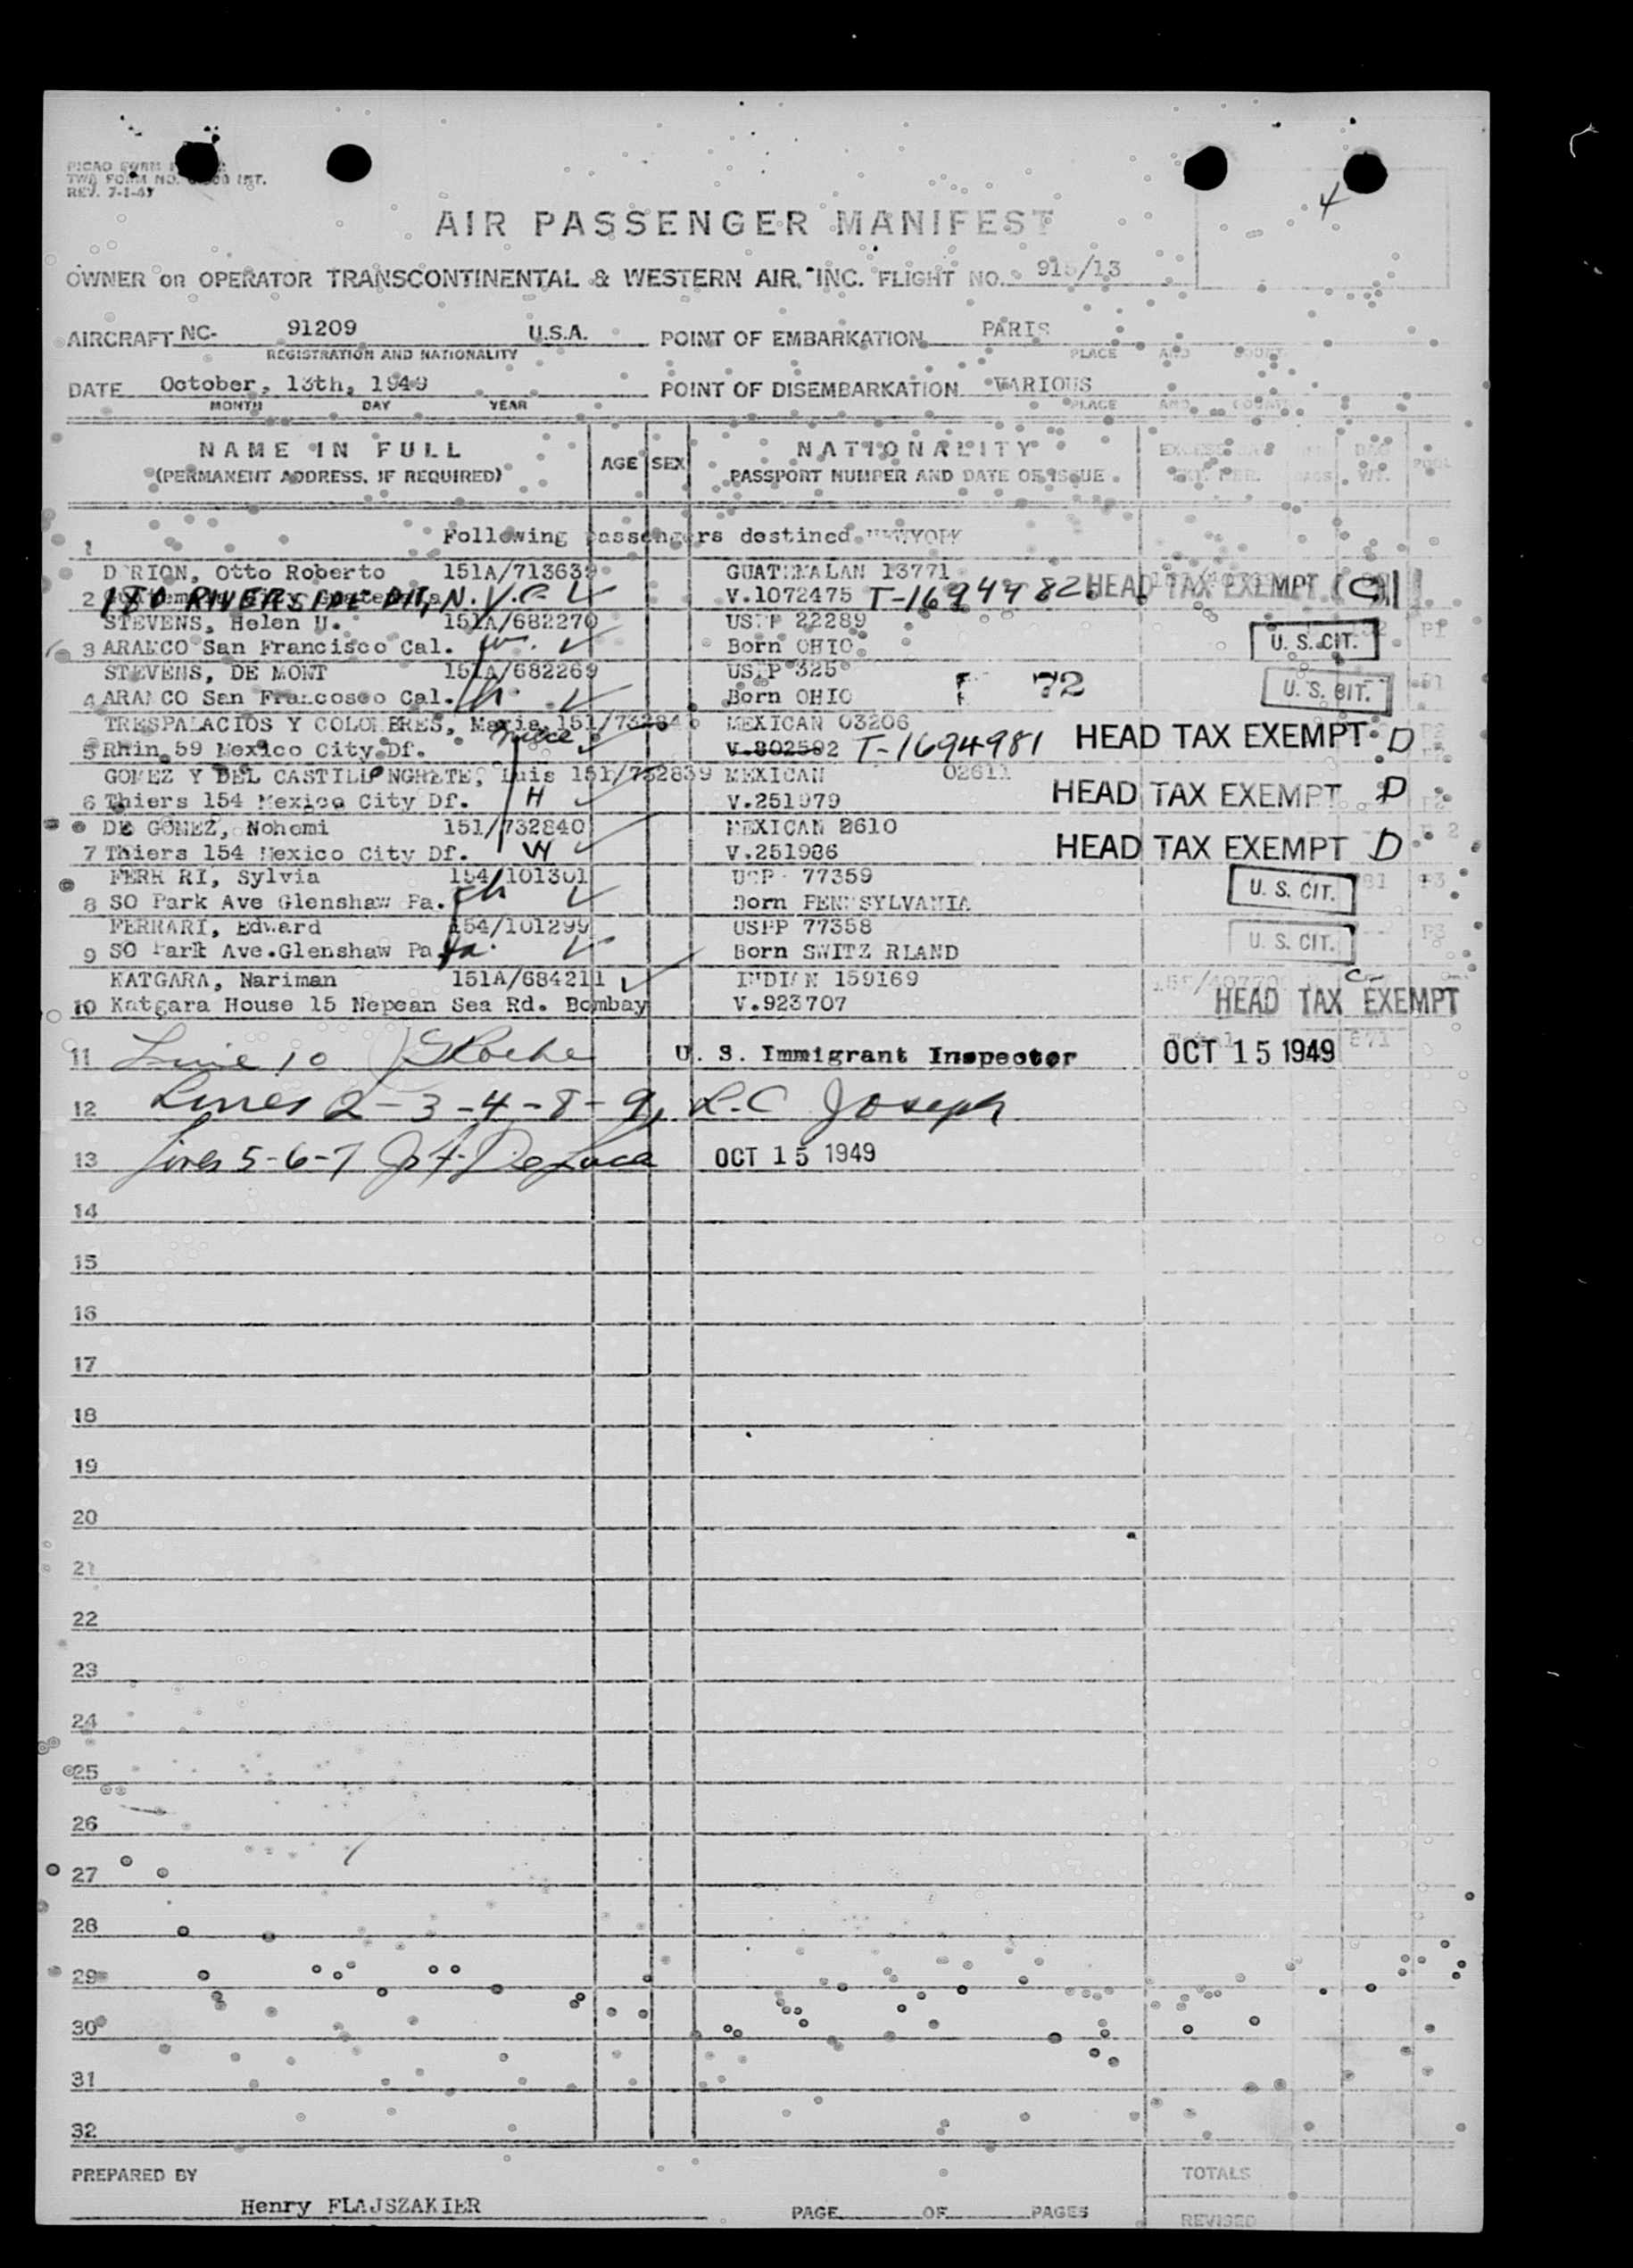 REV. 7-1-47
AIR PASSENGER MANIFEST
OWNER OR OPERATOR TRANSCONTINENTAL & WESTERN AIR, INC. FLIGHT NO. 915/13
AIRCRAFT NC- 91209 U.S.A. POINT OF EMBARKATION PARIS
REGISTRATION AND NATIONALITY PLACE AND
DATE October, 13th, 1949 POINT OF DISEMBARKATION VARIOUS
MONTH DAY YEAR PLACE AND
NAME IN FULL AGE SEX NATIONALITY
(PERMANENT ADDRESS, IF REQUIRED) PASSPORT NUMBER AND DATE OF ISSUE
1 Following passengers destined NEWYORK
Otto Roberto 151A/713639 GUATEMALAN 13771
2 180 RIVERSIDE N.Y.C V.1072475 T-1694982 HEAD TAX EXEMPT C
STEVENS, Helen U. 151A/682270 USPP 22289
3 ARAMCO San Francisco Cal. W. Born OHIO U. S. CIT. P1
STEVENS, DE MONT 151A/682269 325
4 ARAMCO San Francosco Cal. h. Born OHIO 72 U. S. CIT.
TRESPALACIOS Y COLOMBRES, Maria MEXICAN 03206
5 Rhin 59 Mexico City Df. niece V.802592 T-1694981 HEAD TAX EXEMPT D
GOMEZ Y DEL CASTILLO NGRETE, Luis 151/732839 MEXICAN 02611
6 Thiers 154 Mexico City Df. H V.251979 HEAD TAX EXEMPT D
DE GOMEZ, Nohemi 151/732840 MEXICAN 2610
7 Thiers 154 Mexico City Df. W V.251986 HEAD TAX EXEMPT D
FERR RI, Sylvia 154/101301 77359
8 SO Park Ave Glenshaw Pa. Born PENNSYLVANIA U. S. CIT. P3
FERRARI, Edward 154/101299 USPP 77358
9 SO Park Ave.Glenshaw Pa Born SWITZ RLAND U. S. CIT. P3
KATGARA, Nariman 151A/684211 INDIAN 159169
10 Katgara House 15 Nepean Sea Rd. Bombay V.923707 C HEAD TAX EXEMPT
11 Line 10 U. S. Immigrant Inspector OCT 15 1949
12 Lines 2-3-4-8-9, L.C Joseph
13 Lines 5-6-7 OCT 15 1949
14
15
16
17
18
19
20
21
22
23
24
25
26
27
28
29
30
31
32
PREPARED BY TOTALS
Henry FLAJSZAKIER PAGE OF PAGES
REVISED